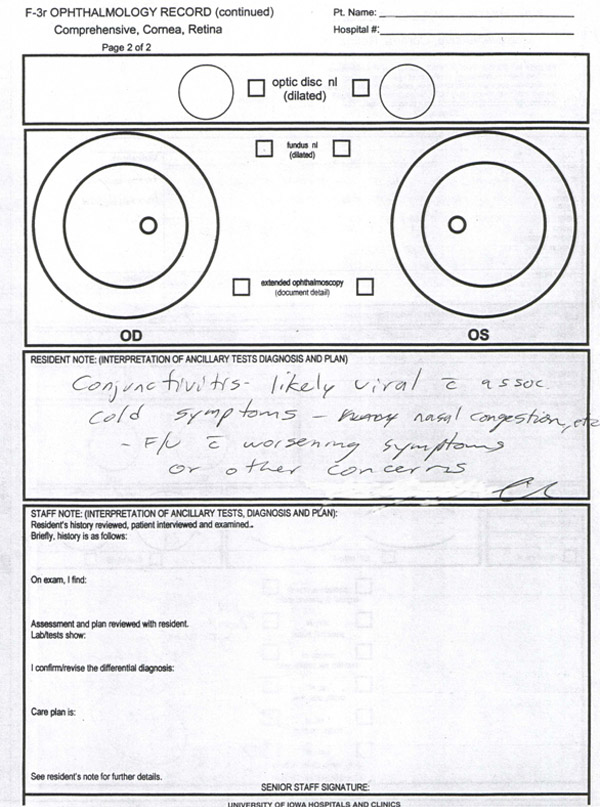 F-3r OPHTHALMOLOGY RECORD (continued)
Comprehensive, Cornea, Retina
Page 2 of 2
Pt. Name:
Hospital #:
optic disc nl
(dilated)
fundus nl
(dilated)
extended ophthalmoscopy
(document detail)
OD
OS
RESIDENT NOTE: (INTERPRETATION OF ANCILLARY TESTS DIAGNOSIS AND PLAN)
Conjunctivitis - likely viral c̄ assoc.
cold symptoms - nasal congestion, etc
- F/U c̄ worsening symptoms
or other concerns
STAFF NOTE: (INTERPRETATION OF ANCILLARY TESTS, DIAGNOSIS AND PLAN):
Resident's history reviewed, patient interviewed and examined..
Briefly, history is as follows:
On exam, I find:
Assessment and plan reviewed with resident.
Lab/tests show:
I confirm/revise the differential diagnosis:
Care plan is:
See resident's note for further details.
SENIOR STAFF SIGNATURE:
UNIVERSITY OF IOWA HOSPITALS AND CLINICS